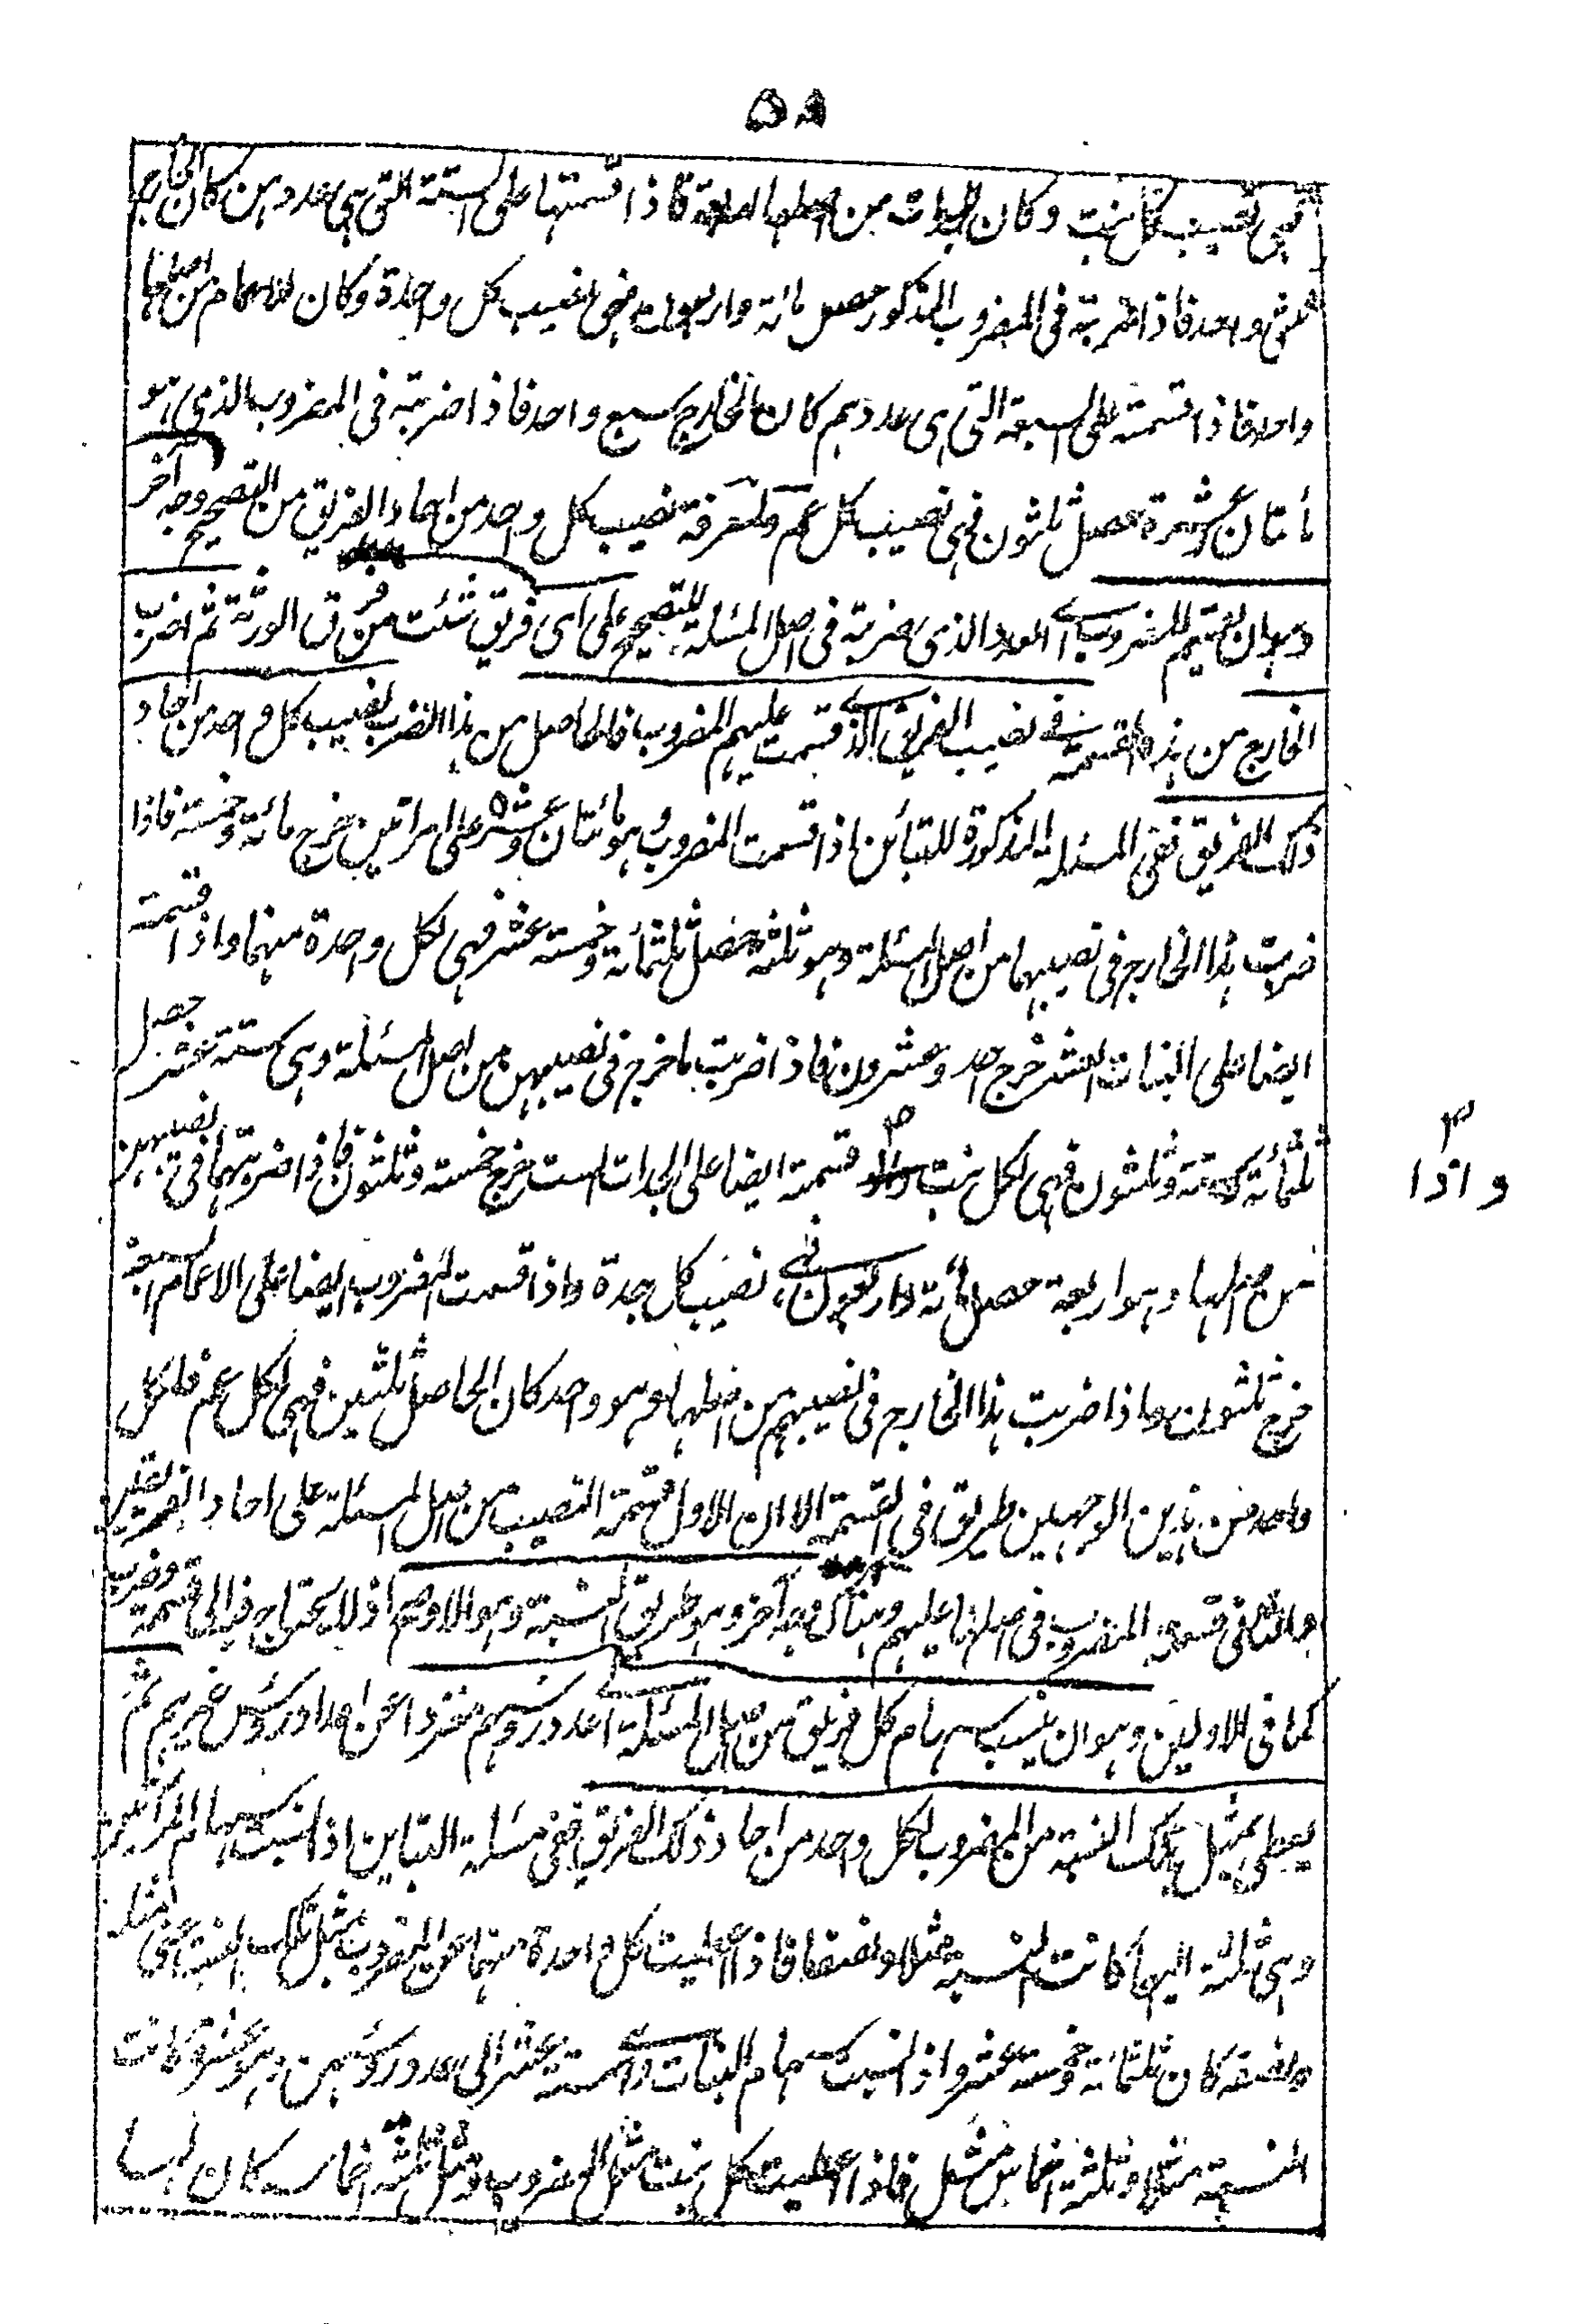 ۵۸
فهي نصيب كل بنت وكان للجدات من اصلها اربعة فاذا قسمتها على الستة التي هي عددهن كان الخارج
ثلثي واحد فاذا ضربته في المضروب المذكور حصل مائة واربعون فهي نصيب كل واحدة وكان للاعمام من اصلها
واحد فاذا قسمته على السبعة التي هي عددهم كان الخارج سبع واحد فاذا ضربته في المضروب الذي هو
مأتان وعشرة حصل ثلثون فهي نصيب كل عم ولمعرفة نصيب كل واحد من احاد الفريق من التصحيح وجه آخر
وهو ان تقسيم المضروب اے العدد الذي ضربته في اصل المسئلة للتصحيح على اى فريق شئت من فرق الورثة ثم اضرب
الخارج من هذه القسمة في نصيب الفريق الذے قسمت عليهم المضروب فالحاصل من هذا الضرب نصيب كل واحد من احاد
ذلك الفريق ففي المسئلة المذكورة للتبائن اذا قسمت المضروب وهو مائتان وعشرة على امرأتين خرج مائة وخمسة فاذا
ضربت هذا الخارج في نصيبهما من اصل المسئلة وهو ثلثة حصل ثلثمائة وخمسة عشر فهي لكل واحدة منهما واذا قسمته
ايضا على البنات العشر خرج احد وعشرون فاذا ضربت ما خرج في نصيبهن من اصل المسئلة وهي ستة عشر حصل
ثلثمائة وستة وثلثون فهي لكل بنت ۳ قسمته ايضا على الجدات الست خرج خمسة وثلثون فاذا ضربتها في نصيبهن
من اصلها وهو اربعة حصل مائة واربعون فهے نصيب كل جدة واذا قسمت المضروب ايضا على الاعمام السبعة
خرج ثلثون واذا ضربت هذا الخارج في نصيبهم من اصلها وهو واحد كان الحاصل ثلثين فهي لكل عم فلكل
واحد من هذين الوجهين طريق في القسمة الا ان الاول قسمة النصيب من اصل المسئلة على احاد الفريقين
والثاني قسمة المضروب في اصلها عليهم وهناك وجه آخر وهو طريق النسبة وهو الاوضح اذ لا يحتاج فيه الى قسمة وضرب
كما في الاولين وهو ان ينسب سهام كل فريق من اصل المسئلة الے عدد رؤسهم مفردا عن اعداد رؤس غيرهم ثم
يعطى بمثل تلك النسبة من المضروب لكل واحد من احاد ذلك الفريق ففي مسئلة التباين اذا نسبت سهام المرأتين
وهي ثلثة اليهما كانت النسبة مثلا ونصفا فاذا اعطيت كل واحدة منهما من المضروب بمثل تلك النسبة اعنى مثله
ونصفه كان ثلثمائة وخمسة عشر واذا نسبت سهام البنات وهے ستة عشر الى عدد رؤسهن وهو عشرة كانت
النسبة مثلا وثلثة اخماس مثل فاذا اعطيت كل بنت مثل المضروب ومثل ثلثة اخماسه كان لها
۳
واذا